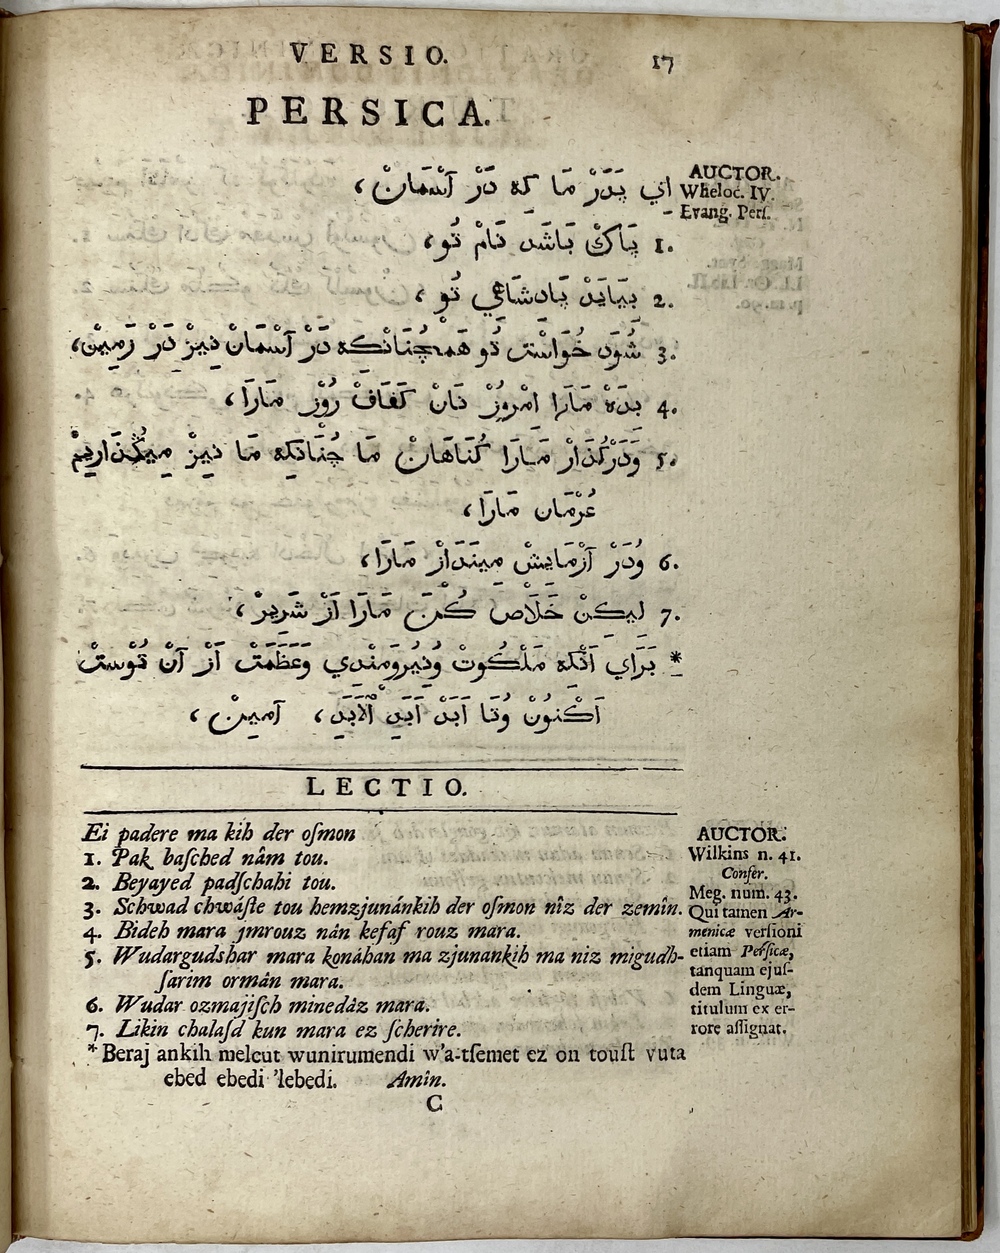 VERSIO. 17
PERSICA.
اي پَدَرْ مَا كه دَرْ آسْمَانْ،
1. پَاكْ بَاشَد نَامْ تُو،
2. بِيَايَدْ پَادشَاهِي تُو ،
3. شُوَد خُوَاسْت تُو هَمْچُنَانْكه دَرْ آسْمَانْ نِيزْ دَرْ زَمِينْ،
4. بِدَهْ مَارَا امْرُوزْ نَانْ كَفَافْ رُوزْ مَارَا،
5. وَدَرْكُذَارْ مَارَا كُنَاهَانْ مَا چُنَانكه مَا نِيزْ مِيكُذَارِيمْ
عُرْمَان مَارَا،
6. وُدَرْ آزْمَايشْ مِينَدَازْ مَارَا،
7. ليكنْ خَلَاص كُنْ مَارَا اَزْ شَرِيرْ،
* بَرَاي اَنْكه مَلْكُوتْ وُنِيُرومَنْدِي وَعَظَمَتْ اَزْ آنْ تُوسْتْ
اَكْنُونْ وُتَا اَبَدْ اَبَدِ الْاَبَدِ، آمِينْ ،
AUCTOR.
Wheloc. IV.
Evang. Perſ.
LECTIO.
Ei padere ma kih der oſmon
1. Pak baſched nâm tou.
2. Beyayed padſchahi tou.
3. Schwad chwáſte tou hemzjunánkih der oſmon nîz der zemîn.
4. Bideh mara jmrouz nân kefaf rouz mara.
5. Wudargudshar mara konáhan ma zjunankih ma niz migudh-
ſarim ormân mara.
6. Wudar ozmajiſch minedâz mara.
7. Likin chalaſd kun mara ez ſcherire.
* Beraj ankih melcut wunirumendi w'a-tſemet ez on touſt vuta
ebed ebedi 'lebedi. Amîn.
C
AUCTOR.
Wilkins n. 41.
Confer.
Meg. num. 43.
Qui tamen Ar-
menicæ verſioni
etiam Perſicæ,
tanquam ejuſ-
dem Linguæ,
titulum ex er-
rore aſſignat.